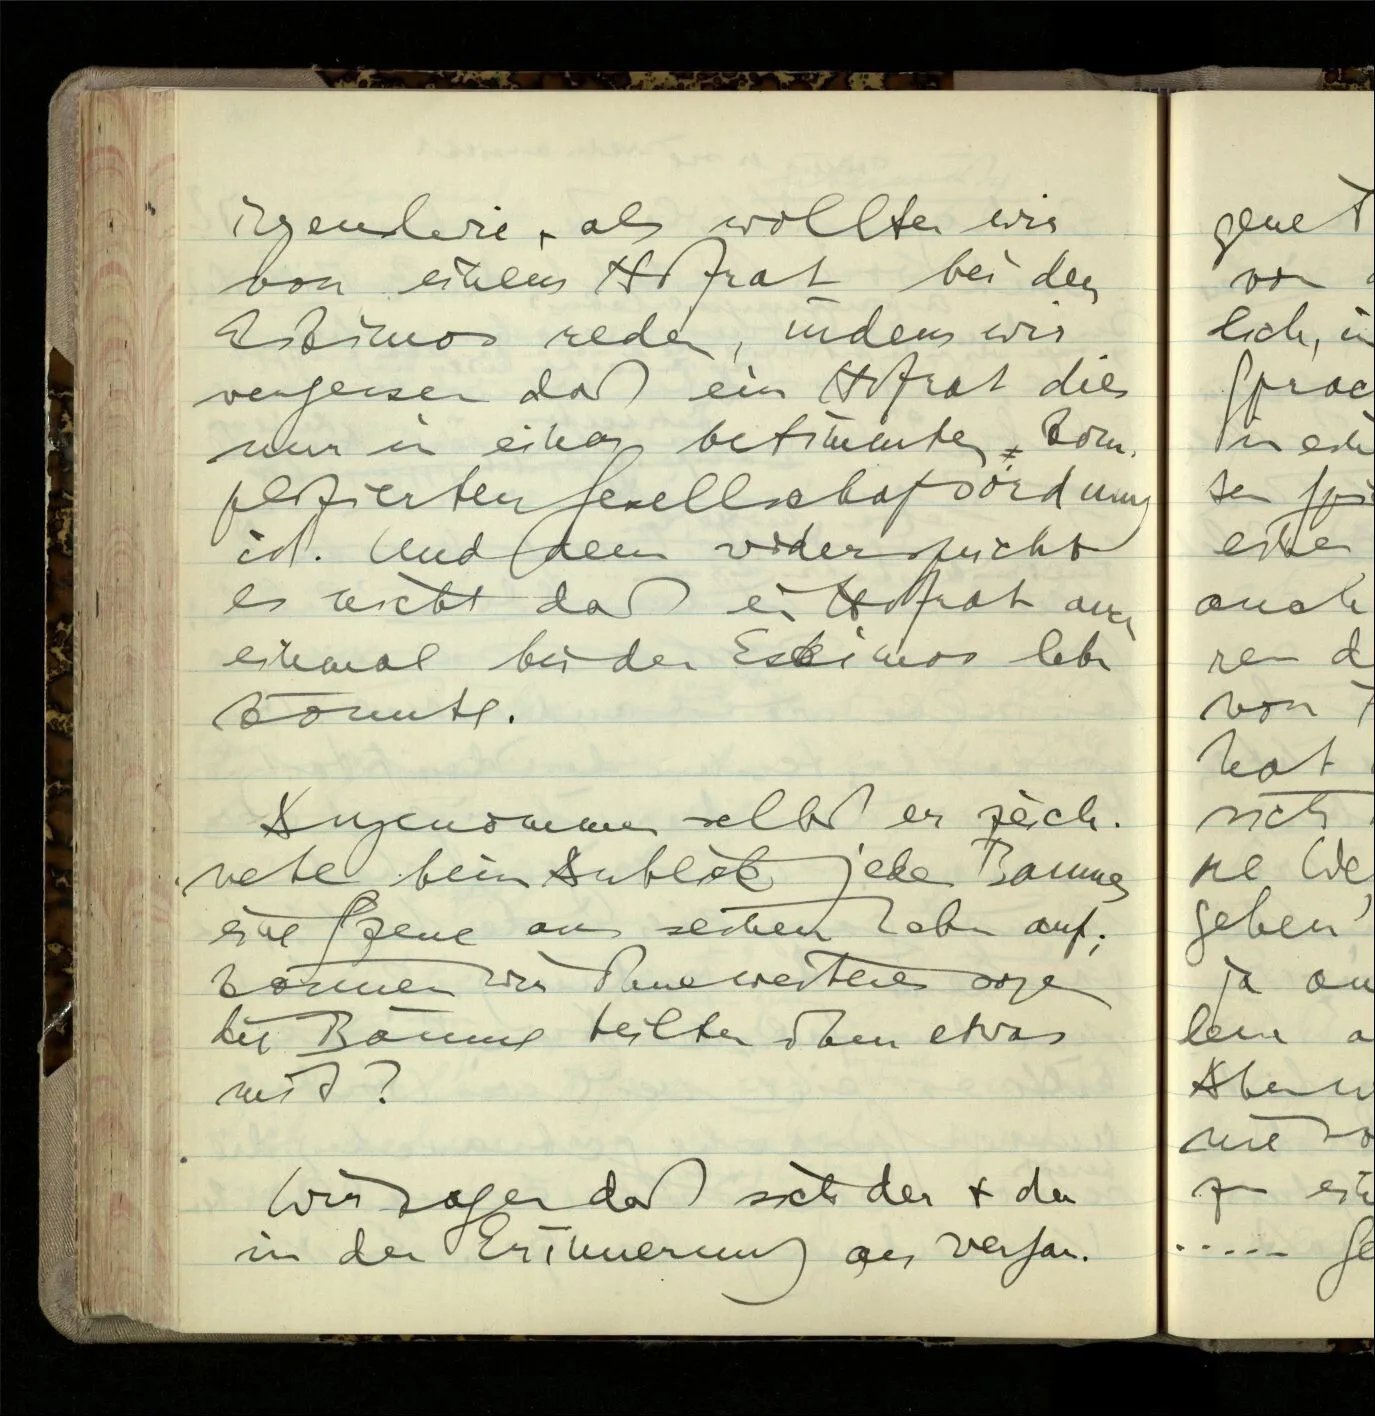 irgendwie, als wollten wir
von einem Hofrat bei den
Eskimos reden, indem wir
vergessen daß ein Hofrat dies
nur in einer bestimmten, kom-
plizierten Gesellschaftsordnung
ist. Und dem widerspricht
es nicht daß ein Hofrat auch
einmal bei den Eskimos leben
könnte.
Angenommen selbst er zeich-
nete beim Anblick jedes Baumes
eine Szene aus seinem Leben auf;
können wir ohne weiteres sagen
die Bäume teilten ihm etwas
mit?
Wir sagen daß sich der & der
in der Erinnerung aus vergan-
gene
von
lich, in
Sprac
in ein
sen
einer
auch
ren d
von
hat
nicht
ne We
geben'
ja au
lein a
Aber w
nie
zu ein
..... Ge